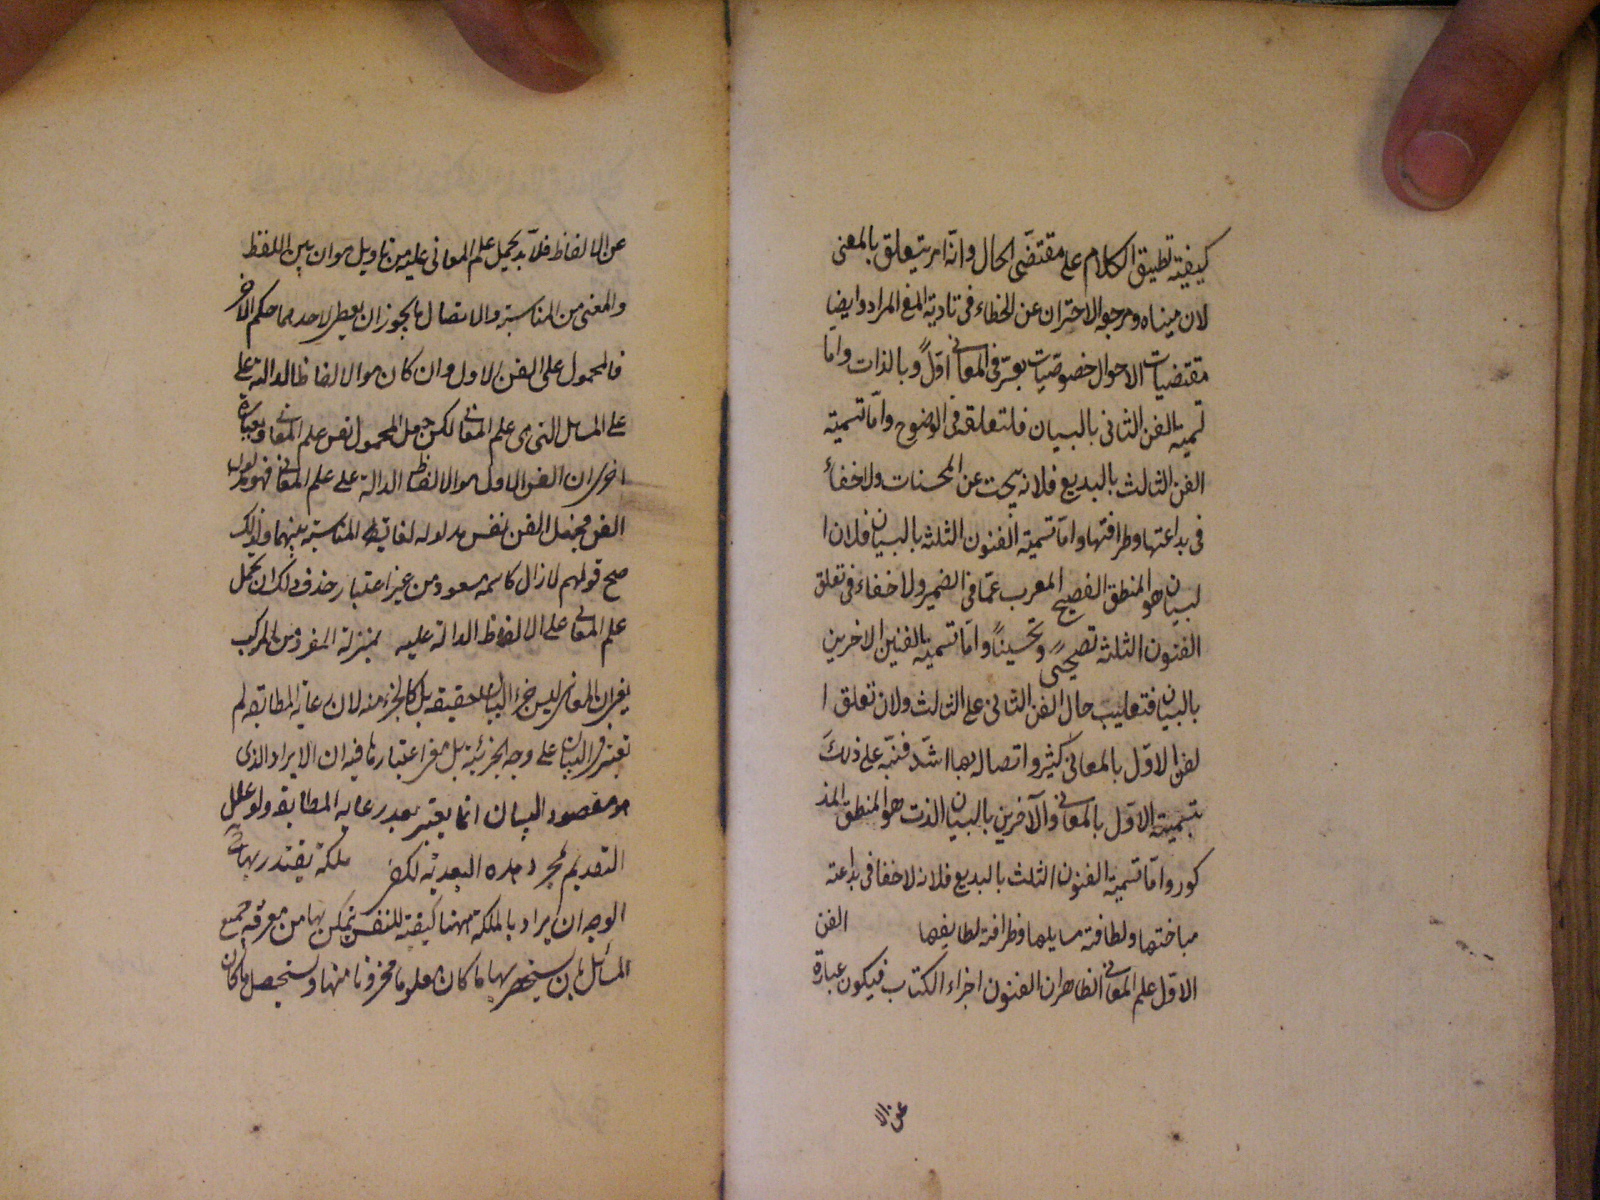 كيفية تطبيق الكلام على مقتضى الحال وانه امر يتعلق بالمعنى
لان مبناه ومرجعه الاحتراز عن الخطاء فى تادية المعنى المراد وايضا
مقتضيات الاحوال خصوصيات يعتبر فى المعانى اولاً وبالذات واما
تسمية الفن الثانى بالبيان فلتعلقه فى الوضوح واما تسمية
الفن الثالث بالبديع فلانه يبحث عن المحسنات ولا خفاء
فى بداعتها وظرافتها واما تسمية الفنون الثلثه بالبيان فلان ا
لبيان هو المنطق الفصيح المعرب عما فى الضمير ولا خفاء فى تعلق
الفنون الثلثة تصحيحًا وتحسيناً واما تسمية الفنين الاخرين
بالبيان فتغليب حال الفن الثانى على الثالث ولان تعلق ا
لفن الاول بالمعانى كثير واتصاله بها اشد فنبه على ذلك
بتسمية الاول بالمعانى والآخرين بالبيان الذى هو المنطق المذ
كور واما تسمية الفنون الثلث بالبديع فلانه لا خفا فى بداعة
مباحثها ولطافة مسايلها وظرافة لطايفها الفن
الاول علم المعانى الظاهر ان الفنون اجزاء الكتاب فيكون عبارة
عن الا
عن الالفاظ فلا بد لحمل علم المعانى عليه من تاويل هو ان بين اللفظ
والمعنى من المناسبة والاتصال ما يجوز ان يعطى لاحدهما حكم الاخر
فالمحمول على الفن الاول وان كان هو الالفاظ الدالة على
على المسائل التى هى علم المعانى لكن جعل المحمول نفس علم المعانى وبعبارة
اخرى ان الفن الاول هو الالفاظ الدالة على علم المعانى فهو مدلول
الفن فجعل الفن نفس مدلوله لغاية المناسبة بينهما ولذلك
صح قولهم من غير اعتبار حذف وذلك ان يحمل
علم المعانى على الالفاظ الدالة عليه بمنزلة المفرد من المركب
يعنى ان المعانى ليس جزء البيان حقيقة بل كالجزء منه لان رعاية المطابقة لم
تعتبر فى البيان على وجه الجزئية بل فى اعتبارها فيه ان الايراد الذى
هو مقصود البيان انما يعتبر بعد رعاية المطابقة ولو علل
التقديم بمجرد هذه البعدية لكفى ملكة يقتدر بها
الوجه ان يراد بالملكة ههنا كيفية للنفس يتمكن بها من معرفة جميع
المسائل بان يستحضر بها ما كان معلوما مخزونا منها ويستحصل ما كان